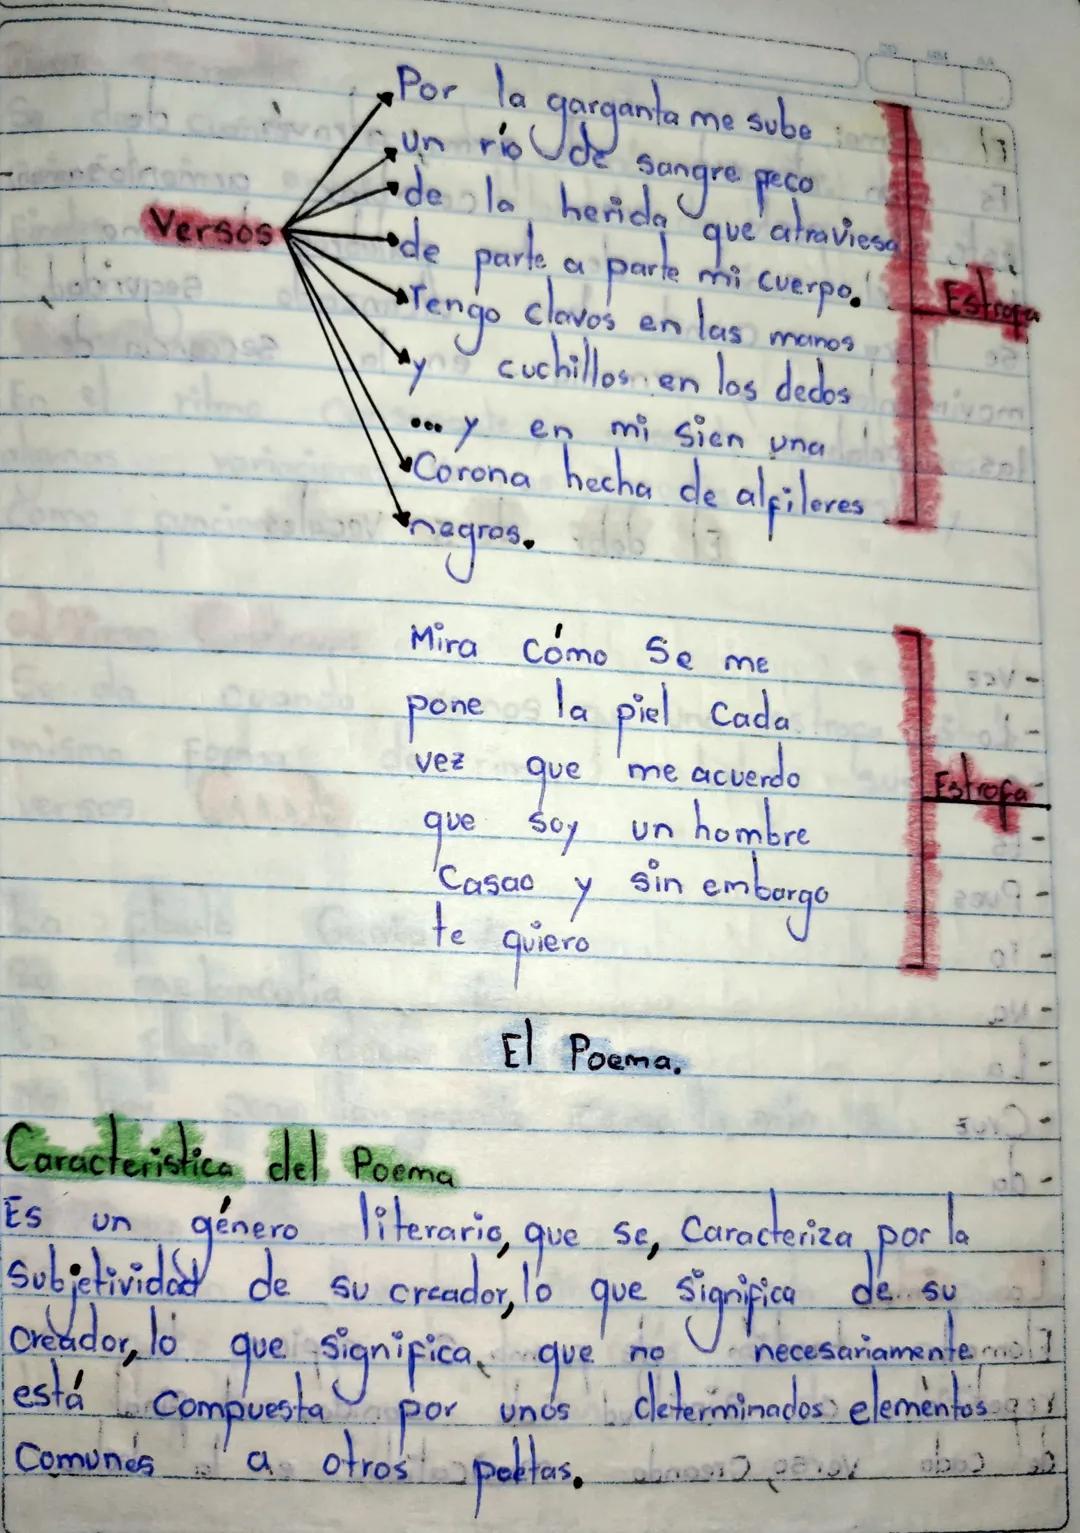 Por la garganta me sube
un río de sangre peco
de la herida que atraviesa
Versos
de parte a parte mi cuerpo.
Tengo clavos en las manos
Estrofa
y cuchillos en los dedos
... y en mi sien una
Corona hecha de alfileres
negros.
Mira cómo se me
pone la piel cada
vez que me acuerdo
Estrofa
que soy un hombre
Casao y sin embargo
te quiero
El Poema.
Caracteristica del Poema
Es un género literario, que se, Caracteriza por la
Subjetividad de su creador, lo que significa de su
creador, lo que significa, que no necesariamente
está Compuesta por unos determinados elementos
Comunes a otros poetas.